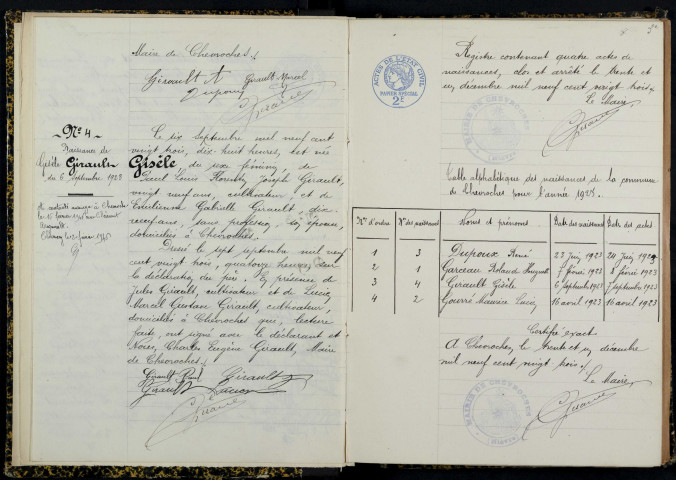 Maire de Chevroches./.
Girault A Girault Marcel
Dupoux
Girault
N° 4
Naissance de
Gisèle Girault
du 6 Septembre 1923
Le six Septembre mil neuf cent
vingt trois, dix huit heures, est née
Gisèle du sexe féminin, de
Louis Joseph Girault,
vingt neuf ans, cultivateur, et de
Émilienne Gabrielle Girault, dix
neuf ans, sans profession, son épouse,
domiciliés à Chevroches.
Dressé le sept septembre mil neuf
cent vingt trois, quatorze heures, sur
la déclaration du père. En présence de
Jules Girault, cultivateur et de Lucien
Marcel Gustave Girault, cultivateur,
domiciliés à Chevroches qui, lecture
faite, ont signé avec le déclarant et
Nous, Charles Eugène Girault, Maire
de Chevroches./.
Girault Paul Girault
Girault Lucien
Girault
ACTES DE L'ETAT CIVIL
PAPIER SPECIAL
2F
Registre contenant quatre actes de
naissances, clos et arrêté le trente et
un décembre mil neuf cent vingt trois.
Le Maire,
Girault
MAIRIE DE CHEVROCHES
(NIEVRE)
Table alphabétique des naissances de la commune
de Chevroches pour l'année 1923.
N° d'ordre N° des naissances Noms et prénoms Date des naissances Date des actes
1 3 Dupoux René 23 Juin 1923 24 Juin 1923
2 1 Garceau Roland 7 février 1923 8 février 1923
3 4 Girault Gisèle 6 septembre 1923 7 septembre 1923
4 2 Gourré Maurice Lucien 16 avril 1923 16 avril 1923
Certifié exact
A Chevroches, le trente et un décembre
mil neuf cent vingt trois./.
Le Maire,
Girault
MAIRIE DE CHEVROCHES
(NIEVRE)